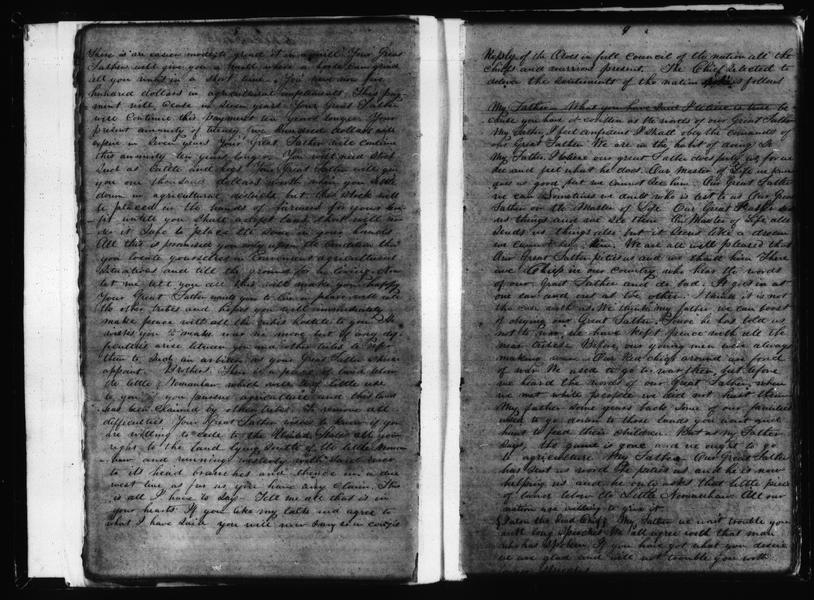 There is an easier mode to grind it in a mill. Your Great
Father will give you a mill where a horse can grind
all you want in a short time. You have now five
hundred dollars in agricultural implements. This pay-
ment will close in seven years. Your Great Father
will continue this payment ten years longer. Your
present annuity of twenty five hundred dollars will
expire in seven years Your Great Father will continue
this annuity ten years longer. You will need Stock
Such as Cattle and hogs Your Great Father will give
you one thousand dollars worth when you
down in agricultural districts but this Stock will
be placed in the hands of
until you shall adopt laws that will
it Safe to place the Same in your hands
All this is promised you only upon the Condition that
you locate yourselves in Convenient agricultural
Situations and till the ground for a living. Now
let me tell you all this will make you happy
Your Great Father wants you to live in peace with all
the other tribes and hopes you will immediately
make peace with all the tribes hostile to you. He
desires you to make war no more but if any dis-
putes arise between you and other tribes to refer
them to Such an arbiter as your Great Father shall
appoint. Brothers. There is a piece of land below
the little Nemahaw which will be of little use
to you if you pursue agriculture and this land
has been Claimed by other tribes. To remove all
difficulties Your Great Father wishes to know if you
are willing to cede to the United States all your
right to the land lying South of the little Nemaw-
haw and running westerly with Said river
to its head branches and thence in a due
west line as far as you have any claim. This
is all I have to Say. Tell me all that is in
your hearts. If you like my talk and agree to
what I have Said you will now Say so in council
9
Reply of the Otoes in full Council of the nation all the
Chiefs and warriors present. The Chief Selected to
deliver the Sentiments of the nation as follows
My Father. What you have Said I believe is true be-
cause you have it written as the words of our Great Father
My Father, I feel confident I Shall obey the Commands of
our Great Father. We are in the habit of doing So
My Father. I believe our great Father does pity us for we
See and feel what he does. Our Master of Life in
gives us good but we cannot See him. Our Great Father
we can Sometimes we doubt who is best to us Our Great
Father or the Master of Life. Our Great Father
us things and we See them. The Master of Life also
Sends us things also but it Seems like a dream
we cannot See him. We are all well pleased that
Our Great Father pities us and we thank him There
are Chiefs in our Country who hear the words
of our Great Father and do bad. It goes in at
one ear and out at the other. I think it is not
the case with us. We think my father we can boast
of obeying our Great Father. Since he has told us
not to war, we have kept peace with all the
near tribes. Before, our young men were always
making war. Our Red chiefs around are fond
of war We used to go to war then, but before
we heard the words of our Great Father, when
we met white people we did not hurt them
My father Some years back Some of our families
used to go down to those lands you want and
hunt to feed their children. But as my Father
Says the game is gone and we ought to go
to agriculture. My Father, Our Great Father
has Sent us word He pities us and he is now
helping us and he only asks that little piece
of land below the Little Nemawhaw All our
nation are willing to give it.
Ietan the head Chief. My Father we wont trouble you
with long Speeches We all agree with that man
who has Spoken. If you have got what you desire
we are glad and will not trouble you with